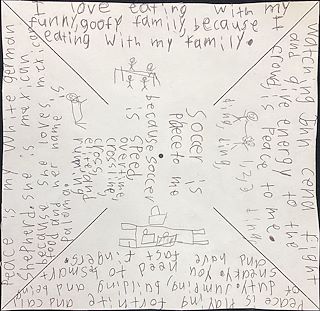 I love eating with my
funny, goofy family, because I
eating with my family.
Watching John Cena fight
and give energy to the
crowd is Peace to me.
Socer is
peace to me
because socer
is speed
overtime
crossing
Peace is playing fortnite and call
of duty. Jumming, building, and being
sneaky. you need to be smart
and have fast fingers.
Peace is my White german
Shepherd. she is mexican.
because she loves, mexican
food and her name is
Paloma.